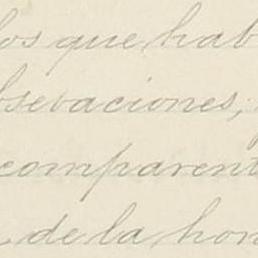 los que hab
bsevaciones,
comparent
de la hon